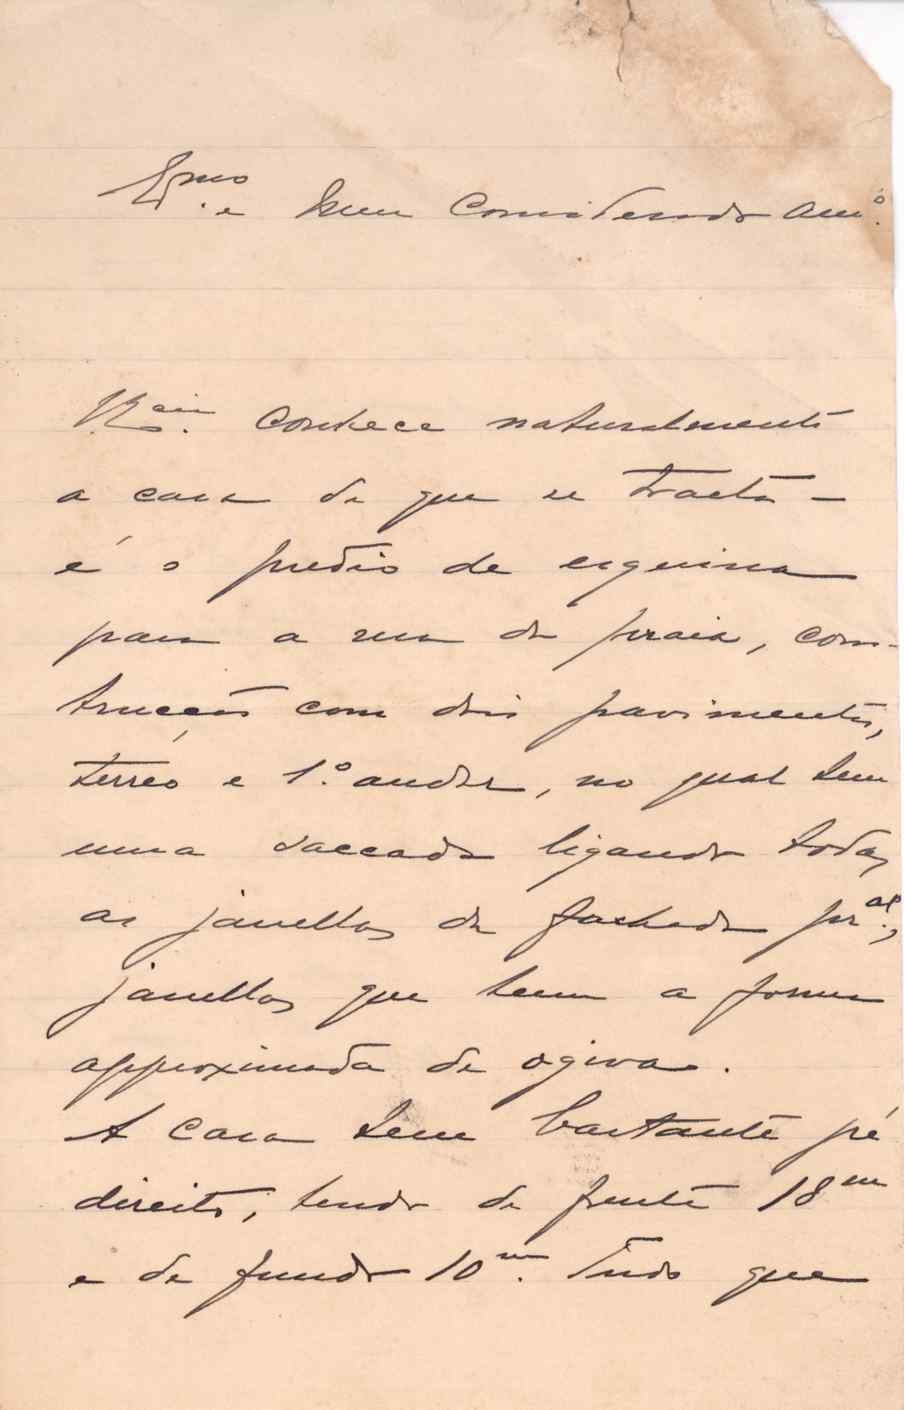 Exmo. e Meu Considerado Amº.
V. Excia. conhece naturalmente
a casa de que se tracta –
é o predio de esquina
para a rua da praia, cons-
trucção com dois pavimentos,
terréo e 1.º andar, no qual tem
uma saccada ligando todas
as janellas da fachada pral.,
janellas que teem a forma
approximada de ogivas.
A casa tem bastante pé
direito, tendo de frente 18m
e de fundo 10m. Tudo que